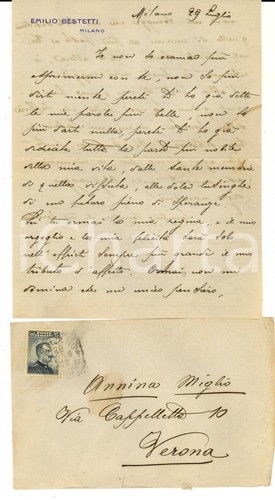 EMILIO BESTETTI
MILANO
Milano 29 Luglio
Io non so oramai più
esprimermi con te, non so più
dirti niente perchè ti ho già detto
le mie parole più belle, non so
più darti nulla perchè ti ho già
schiuse tutta la parte più nobile
della mia vita, dalle sante memorie
di quella vissuta, alle dolci lusinghe
di un futuro pieno di speranze.
Tu sei ormai la mia regina, e il mio
orgoglio e la mia felicità sarà solo
nell'offrirti sempre più grande il mio
tributo d'affetto. Ormai non mi
domina che un unico pensiero,
Annina Miglio
Via Cappelletta 10
Verona